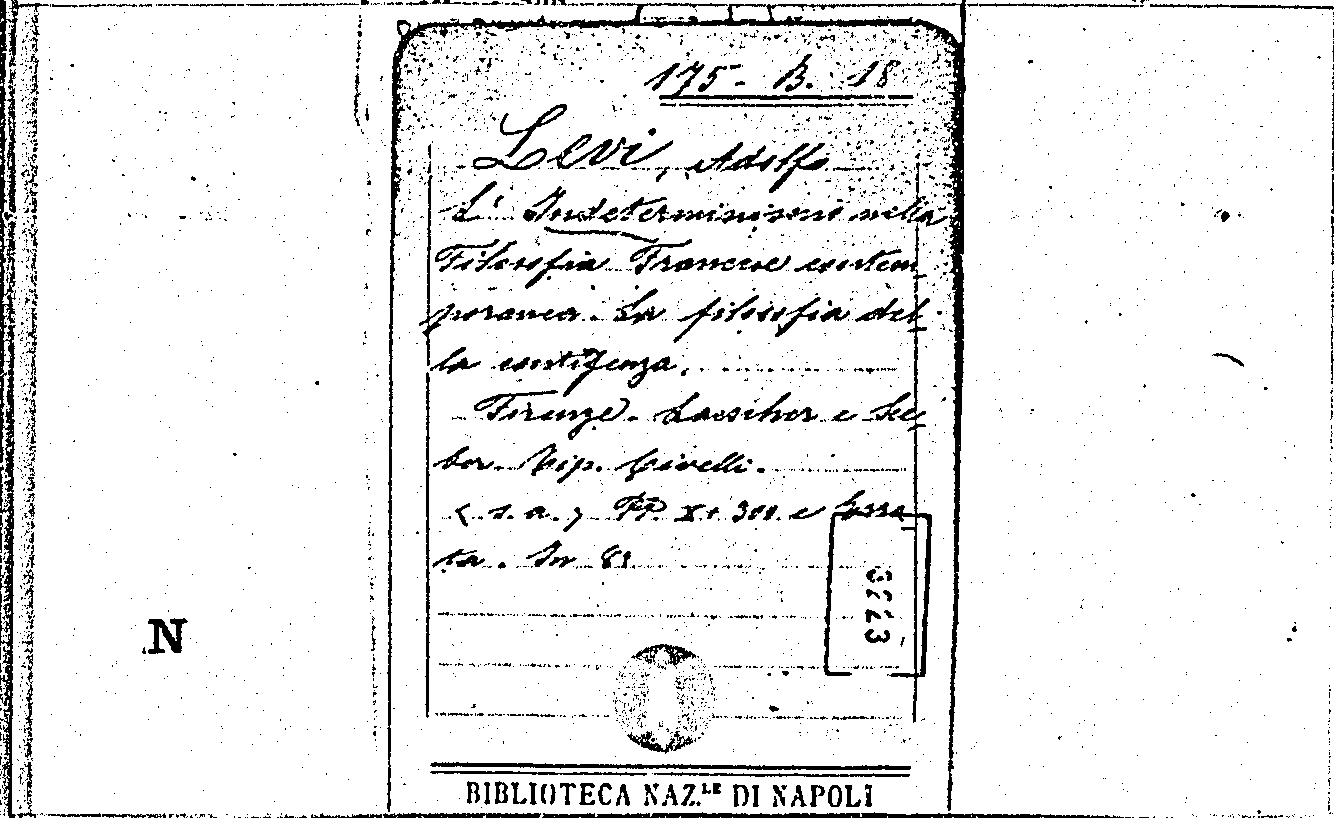 175 - B. 18
Levi, Adolfo
L' Indeterminismo nella
Filosofia Francese contem-
poranea. La filosofia del-
la contigenza.
Firenze. Laescher e See-
ber. Tip. Civelli.
<s.a.> PP. X + 300 e
ta. In 8º
3223
N
BIBLIOTECA NAZ.LE DI NAPOLI